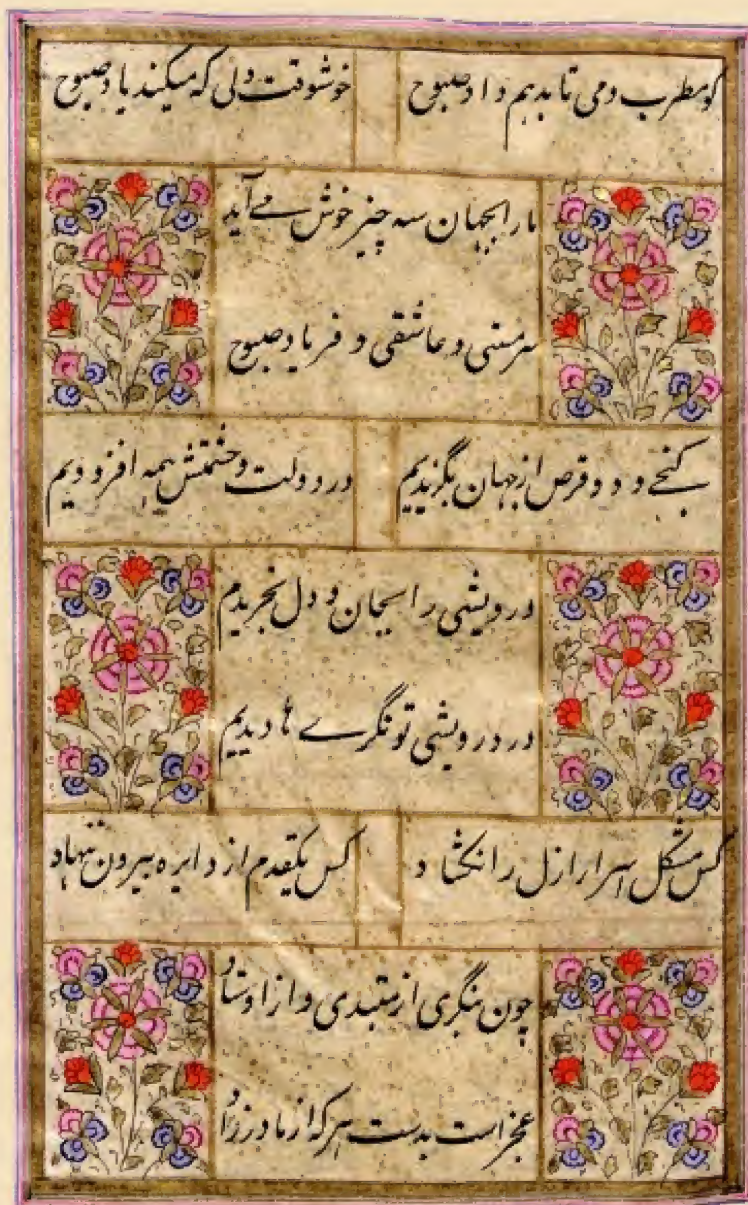 کو مطرب و می تا بدهم داد صبوح
خوشوقت دلی که میکند یاد صبوح
ما را بجهان سه چیز خوش می آید
سرمستی و عاشقی و فریاد صبوح
کنجے و دو قرص از جهان بگزیدیم
در دولت و حشمتش همه افزودیم
درویشی را بجان و دل بخریدم
در درویشی تونگرے ها دیدیم
کس مشکل اسرار ازل را نکشاد
کس یکقدم از دایره بیرون ننهاد
چون بنگری از مبتدی و از اوستاد
عجز است بدست هرکه از مادر زاد